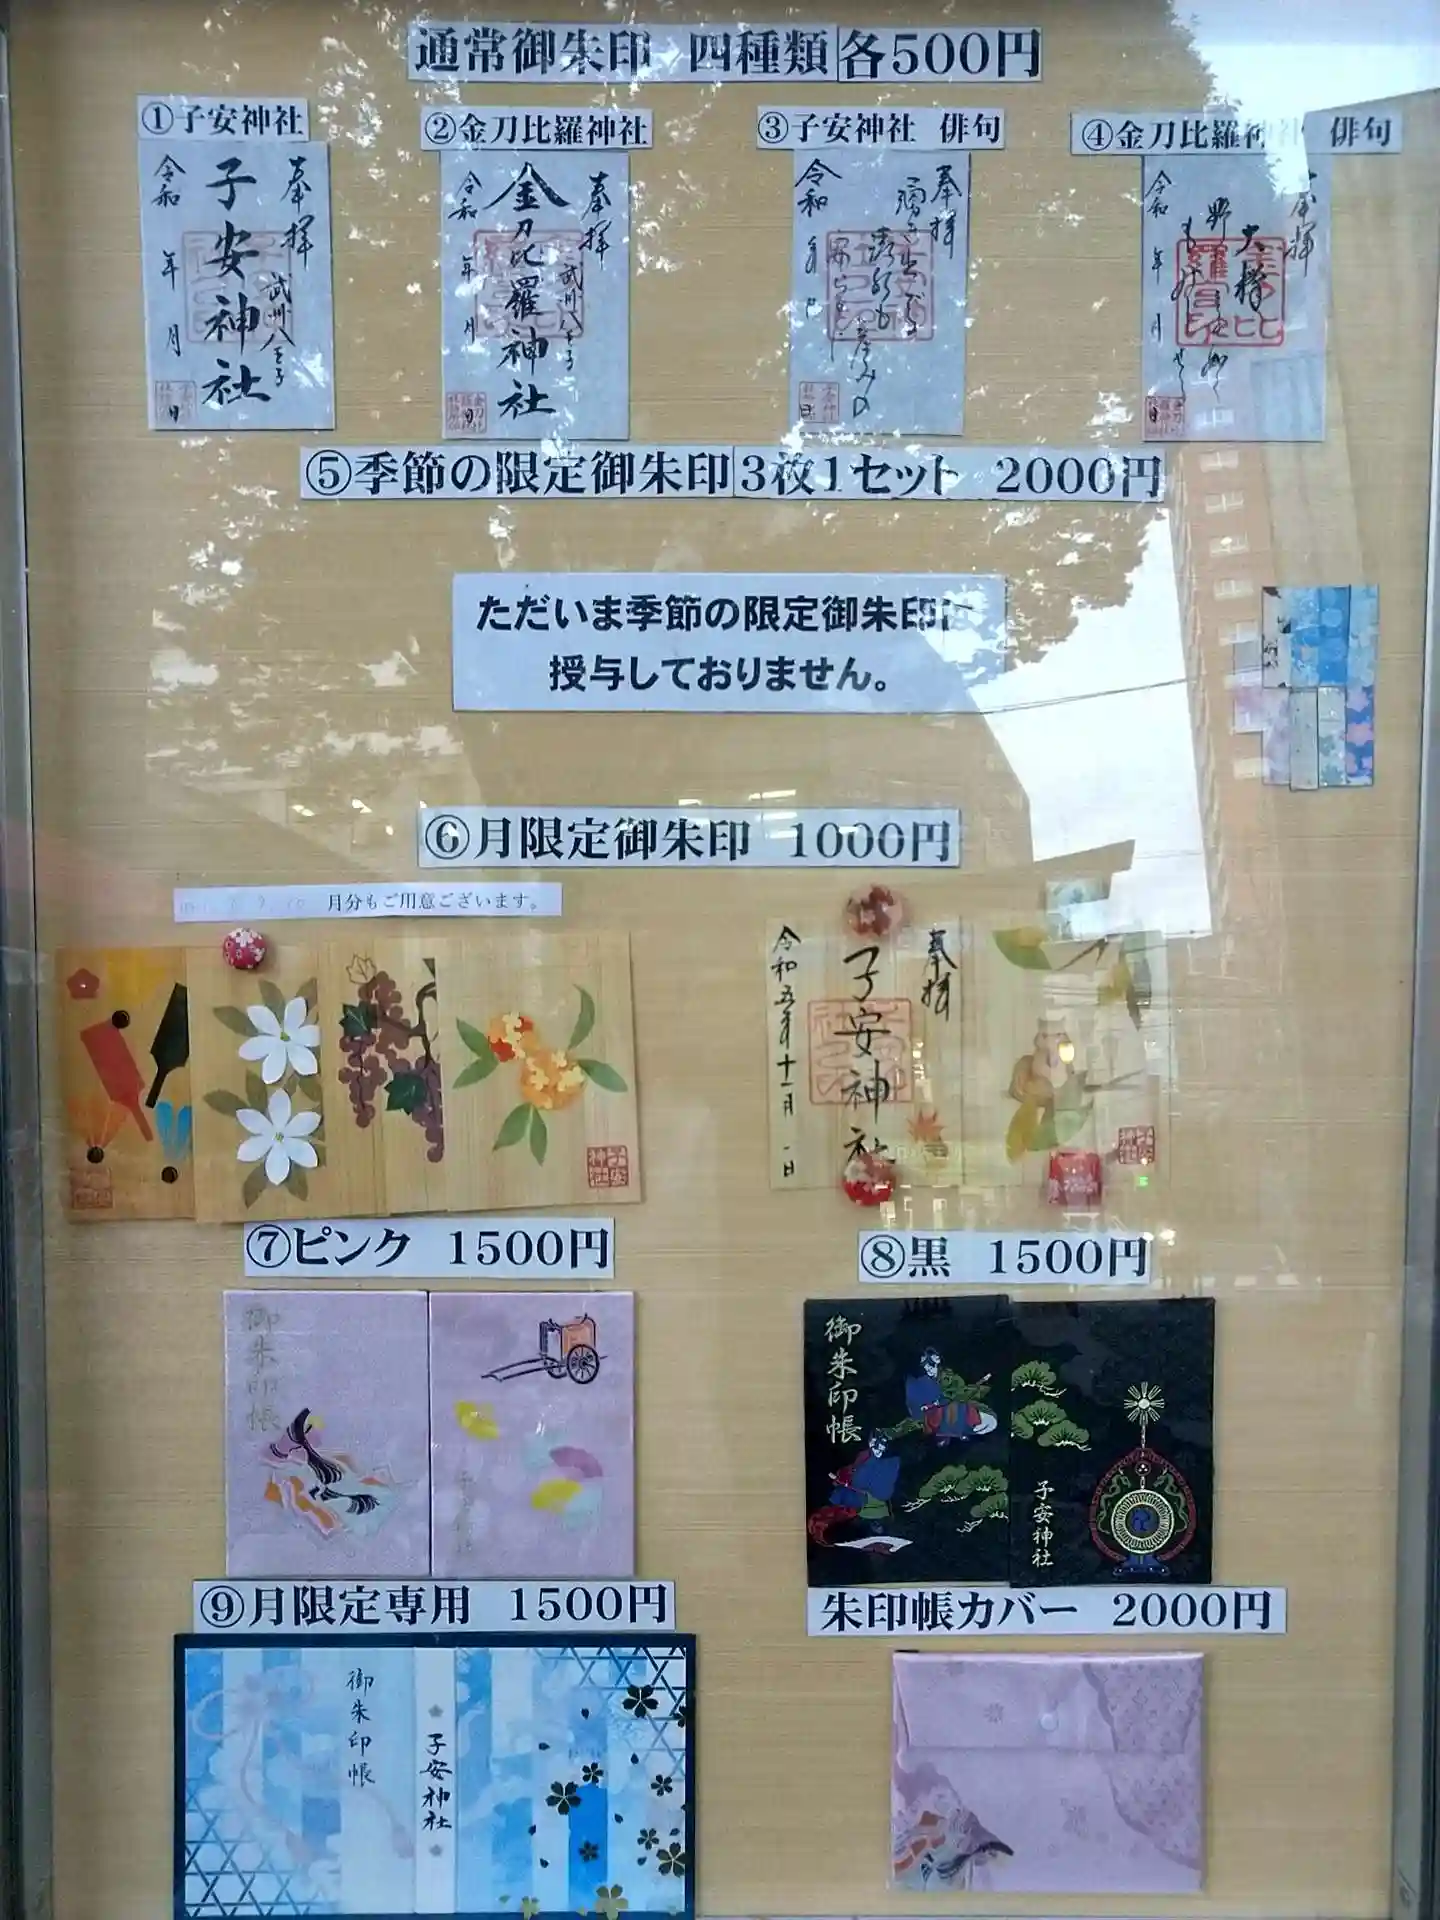 通常御朱印 四種類 各500円
①子安神社
②金刀比羅神社
③子安神社 俳句
④金刀比羅神社 俳句
奉拝
武州八王子
子安神社
令和 年 月 日
奉拝
武州八王子
金刀比羅神社
令和 年 月 日
奉拝
令和 年
奉拝
令和 年 月 日
⑤季節の限定御朱印3枚1セット 2000円
ただいま季節の限定御朱印は
授与しておりません。
⑥月限定御朱印 1000円
月分もご用意ございます。
奉拝
子安神社
令和五年十一月 一日
⑦ピンク 1500円
⑧黒 1500円
御朱印帳
御朱印帳
子安神社
⑨月限定専用 1500円
朱印帳カバー 2000円
御朱印帳
子安神社